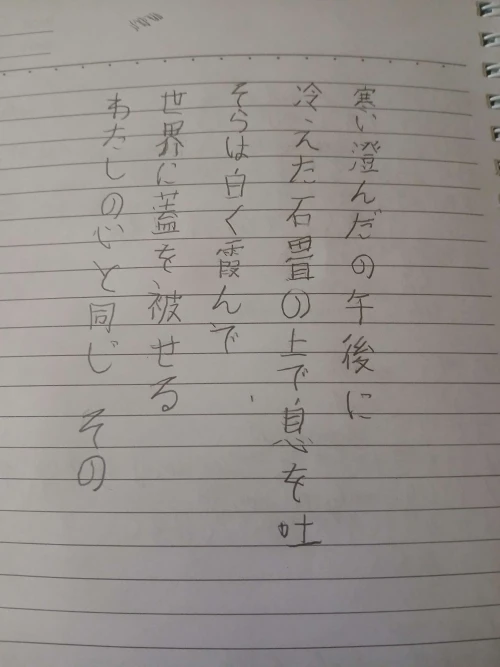 寒い澄んだの午後に
冷えた石畳の上で息を吐
そらは白く霞んで
世界に蓋を被せる
わたしの心と同じ その